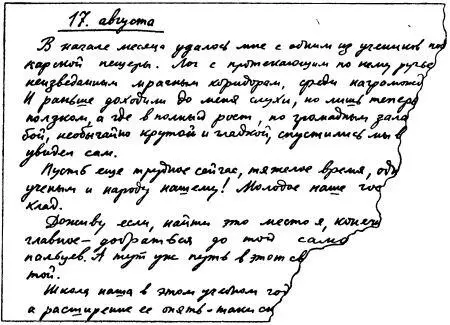 17. августа
В начале месяца удалось мне с одним из учеников по
карской пещеры. Лог с протекающим по нему ручье
неизведанным мрачным коридорам, среди нагроможд
И раньше доходили до меня слухи, но лишь тепер
ползком, а где в полный рост, по громадным зала
бой, необычайно крутой и гладкой, спустились мы в
увидел сам.
Пусть еще трудное сейчас, тяжелое время, одн
ученым и народу нашему! Молодое наше гос
клад.
Доживу если, найти это место я, конечн
главное – добраться до той само
пальцев. А тут уж путь в этот св
той.
Школа наша в этом учебном год
а расширение ее опять-таки св